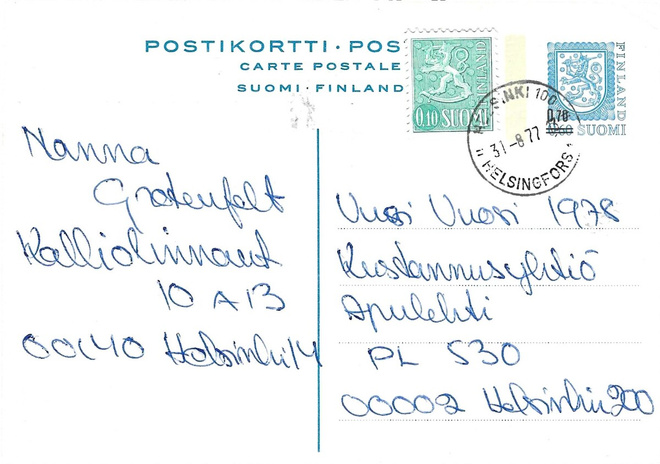 POSTIKORTTI · POS
CARTE POSTALE
SUOMI · FINLAND
0,10 SUOMI
FINLAND
FINLAND
0,70
0,60 SUOMI
HELSINKI 100
31-8 77
HELSINGFORS
Nanna
Grotenfelt
Kalliolinnant
10 A 13
00140 Helsinki 14
Uusi Vuosi 1978
Kustannusyhtiö
Apulehti
PL 530
00002 Helsinki 200